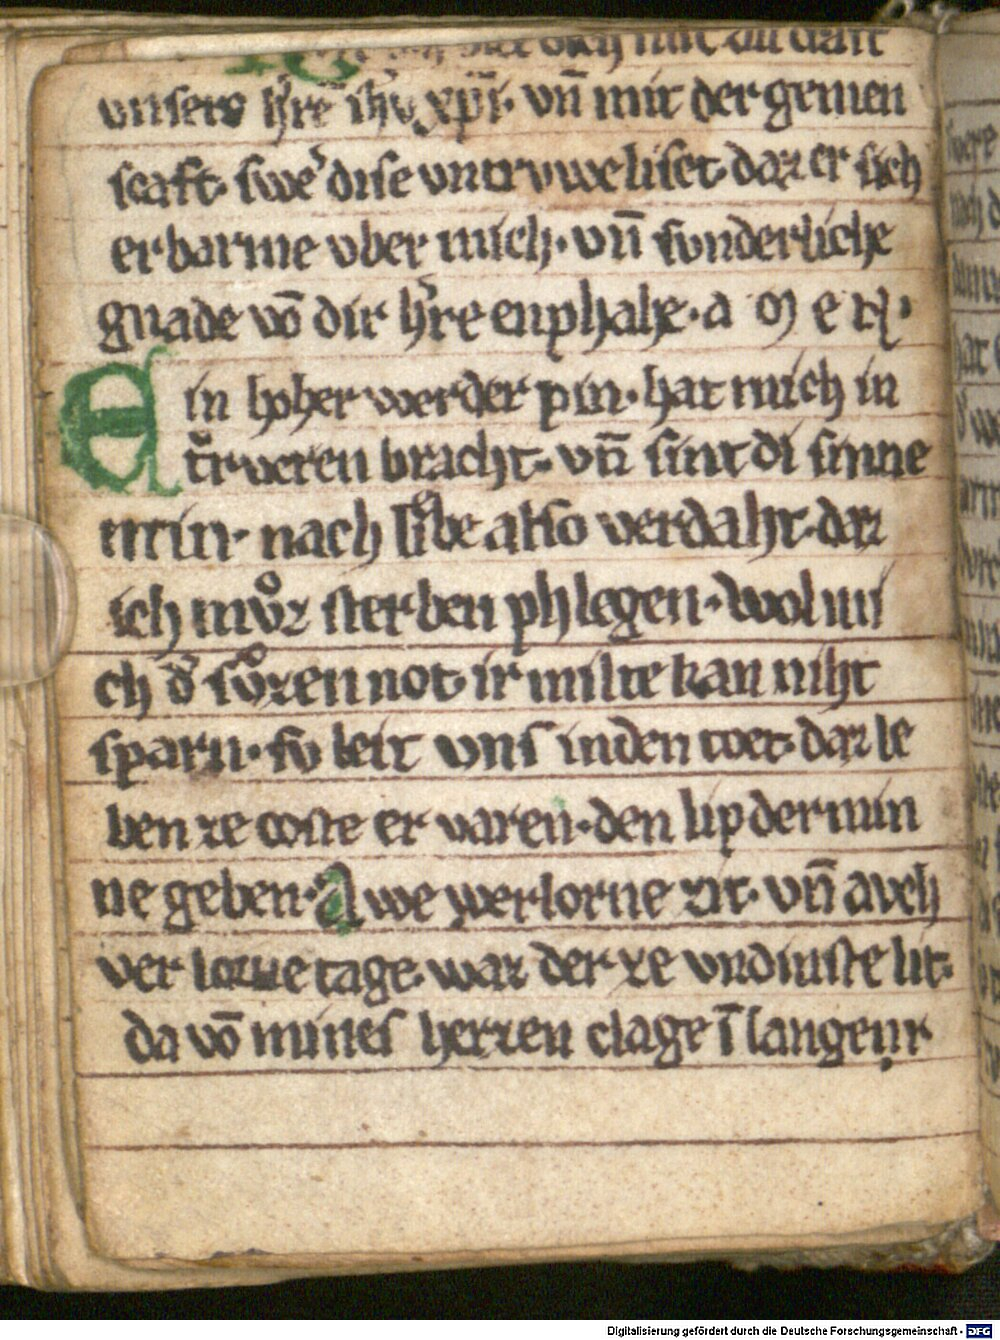 dich mit dít craft
vnsers hr̄e ih̄v xp̄i· vn̄ mit der gemen
scaft· swe᷑ dise vntruwe liset· daz er sich
erbarme vber mich· vn̄ sunderliche
gnade vō dir hr̄e enphahe· a m e n·
Ein hoher werder pin· hat mich in
truren bracht· vn̄ sint di sinne
min· nach libe also verdaht· daz
ich mvͦz sterben phlegen· wol mi
ch d᷑ sůzen not ir milte kan niht
sparn· sv leit vns in den toet· daz le
ben ze coste er varen· den lip der min
ne geben· Awe verlorne zit· vn̄ avch
ver lorne tage· waz der ze vndinste lit·
da vō mines herzen clage ī langen
Digitalisierung gefördert durch die Deutsche Forschungsgemeinschaft - DFG